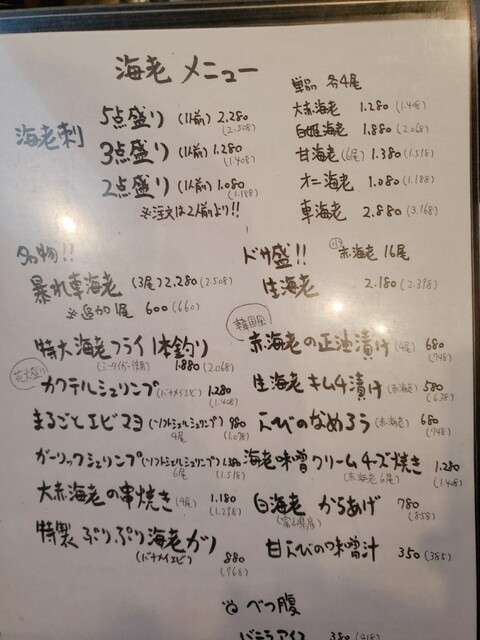 海老 メニュー
海老刺
5点盛り (1人前) 2.280 (2.508)
3点盛り (1人前) 1.280 (1.408)
2点盛り (1人前) 1.080 (1.188)
※注文は2人前より!!
単品 各4尾
大赤海老 1.280 (1.408)
白姫海老 1.880 (2.068)
甘海老 (6尾) 1.380 (1.518)
オニ海老 1.080 (1.188)
車海老 2.880 (3.168)
名物!!
暴れ車海老 (3尾) 2.280 (2.508)
※追加1尾 600 (660)
ドサ盛!! 赤海老 16尾
生海老 2.180 (2.398)
特大海老フライ 1本釣り
1.880 (2.068)
カクテルシュリンプ (バナメイエビ) 1.280
(1.408)
まるごとエビマヨ (ソフトシェルシュリンプ) 980
4尾 (1.078)
ガーリックシュリンプ (ソフトシェルシュリンプ) 1.380
6尾 (1.518)
大赤海老の串焼き (4尾) 1.180
(1.298)
特製 ぷりぷり海老ガツ
(バナメイエビ) 880
(968)
韓国風
赤海老の正油漬け (4尾) 680
(748)
生海老キムチ漬け (赤海老) 580
(638)
天びのなめろう (赤海老) 680
(748)
海老味噌クリームチーズ焼き 1.280
(赤海老6尾) (1.408)
白海老 からあげ 780
(富山県産) (858)
甘えびの味噌汁 350 (385)
べつ腹
バニラアイス 380 (418)